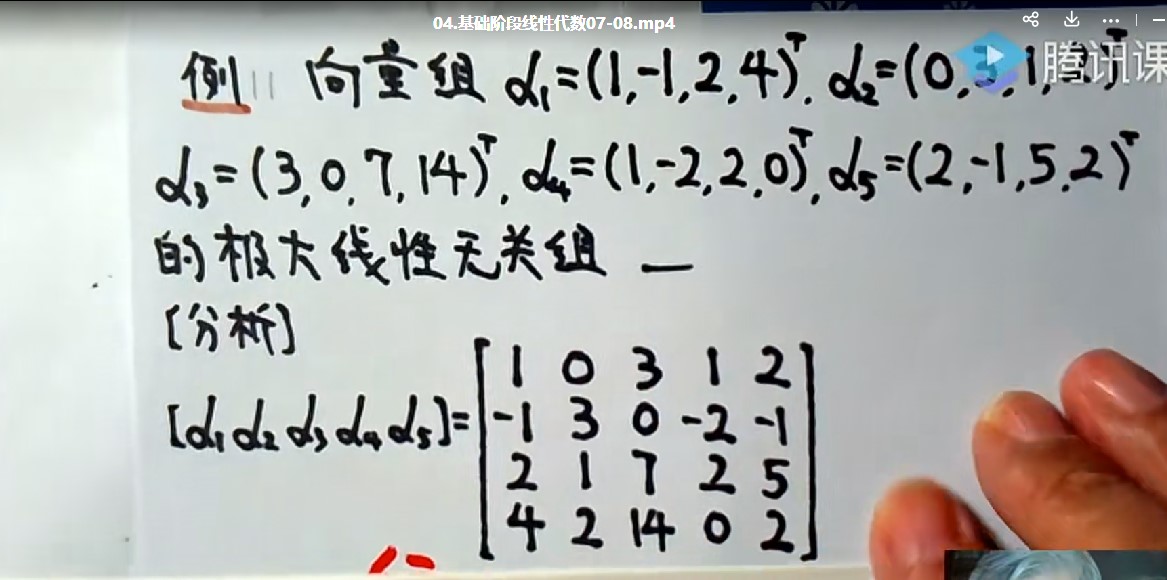 04.基础阶段线性代数07-08.mp4
例11 向量组 α₁=(1,-1,2,4)ᵀ, α₂=(0,3,1,2)ᵀ
腾讯课
α₃=(3,0,7,14)ᵀ, α₄=(1,-2,2,0)ᵀ, α₅=(2,-1,5,2)ᵀ
的极大线性无关组 __
[分析]
[α₁ α₂ α₃ α₄ α₅]=
1 0 3 1 2
-1 3 0 -2 -1
2 1 7 2 5
4 2 14 0 2